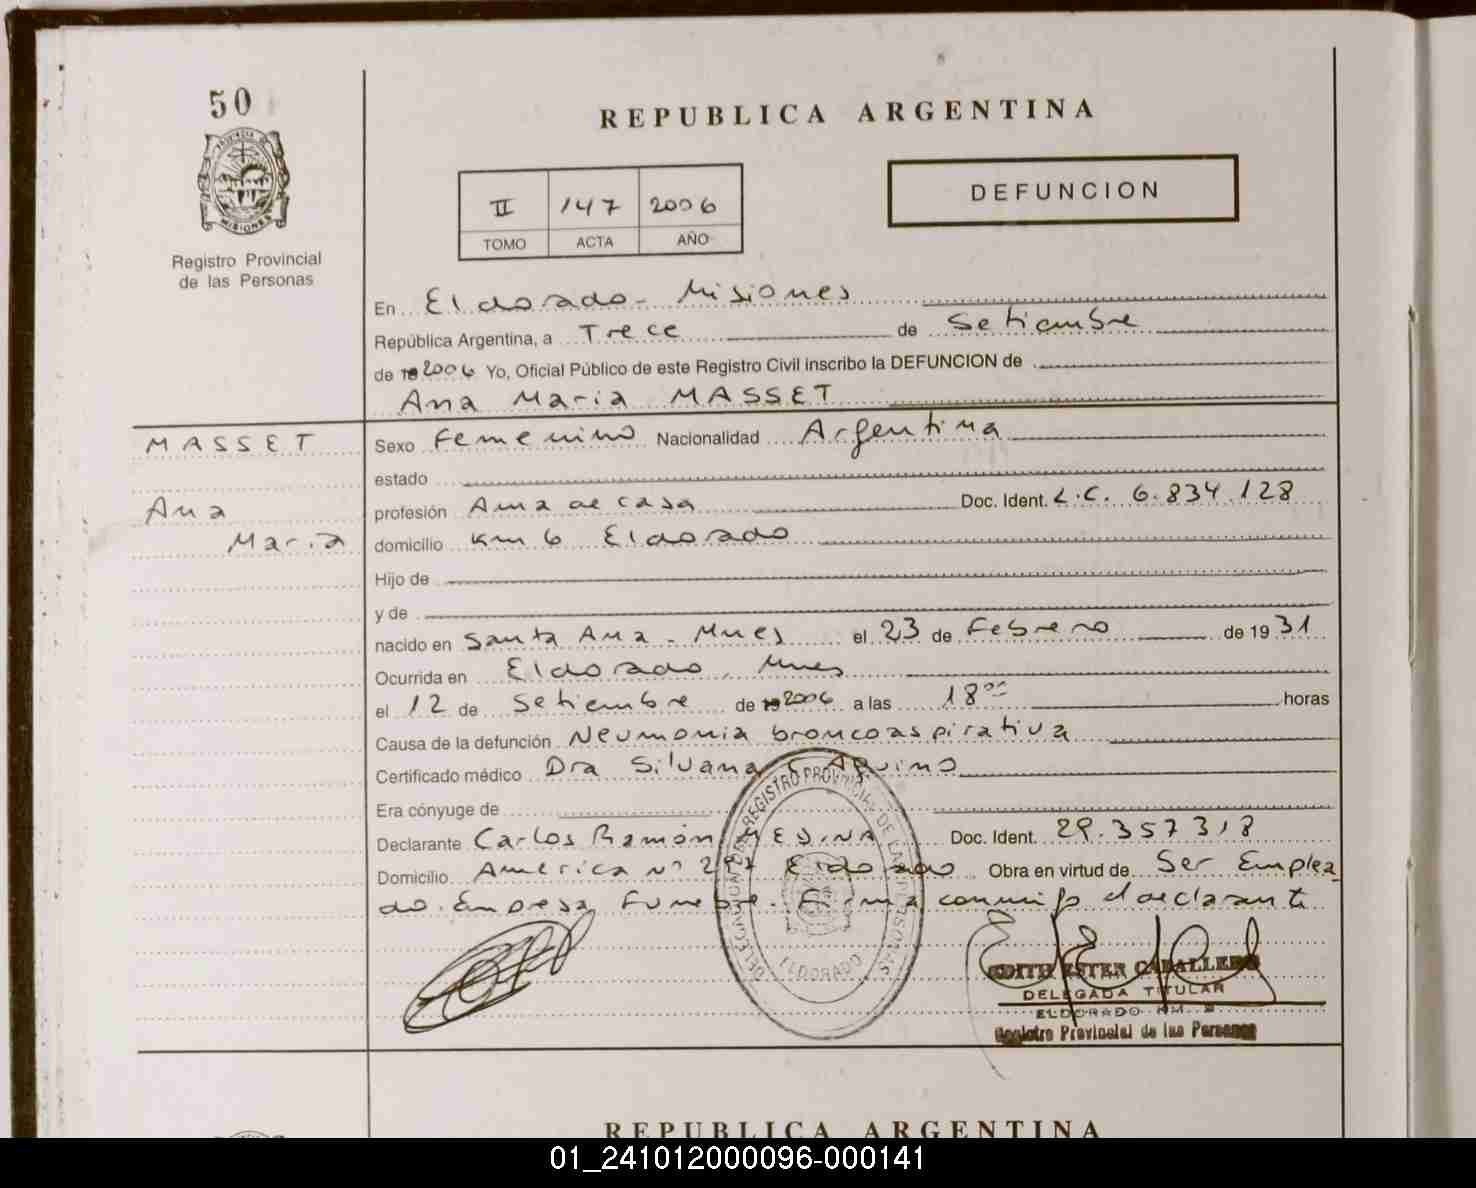 50
REPUBLICA ARGENTINA
PROVINCIA DE
MISIONES
II 147 2006
TOMO ACTA AÑO
DEFUNCION
Registro Provincial
de las Personas
En Eldorado - Misiones
República Argentina, a Trece de Setiembre
de 2006 Yo, Oficial Público de este Registro Civil inscribo la DEFUNCION de
Ana Maria MASSET
MASSET
Ana
Maria
Sexo Femenino Nacionalidad Argentina
estado
profesión Ama de casa Doc. Ident. L.C. 6.834.128
domicilio Km 6 Eldorado
Hijo de
y de
nacido en Santa Ana - Mnes el 23 de Febrero de 1931
Ocurrida en Eldorado, Mnes
el 12 de Setiembre de 2006 a las 18⁰⁰ horas
Causa de la defunción Neumonia broncoaspirativa
Certificado médico Dra Silvana Aquino
Era cónyuge de
Declarante Carlos Ramón MEDINA Doc. Ident. 29.357318
Domicilio America Nº Eldorado Obra en virtud de Ser Emplea
do Empresa Funebre. Firma conmigo el declarante
DELEGACION DEL REGISTRO PROVINCIAL DE LAS PERSONAS
ELDORADO
EDITH ESTER CABALLERO
DELEGADA TITULAR
ELDORADO KM.
Registro Provincial de las Personas
REPUBLICA ARGENTINA
01_241012000096-000141